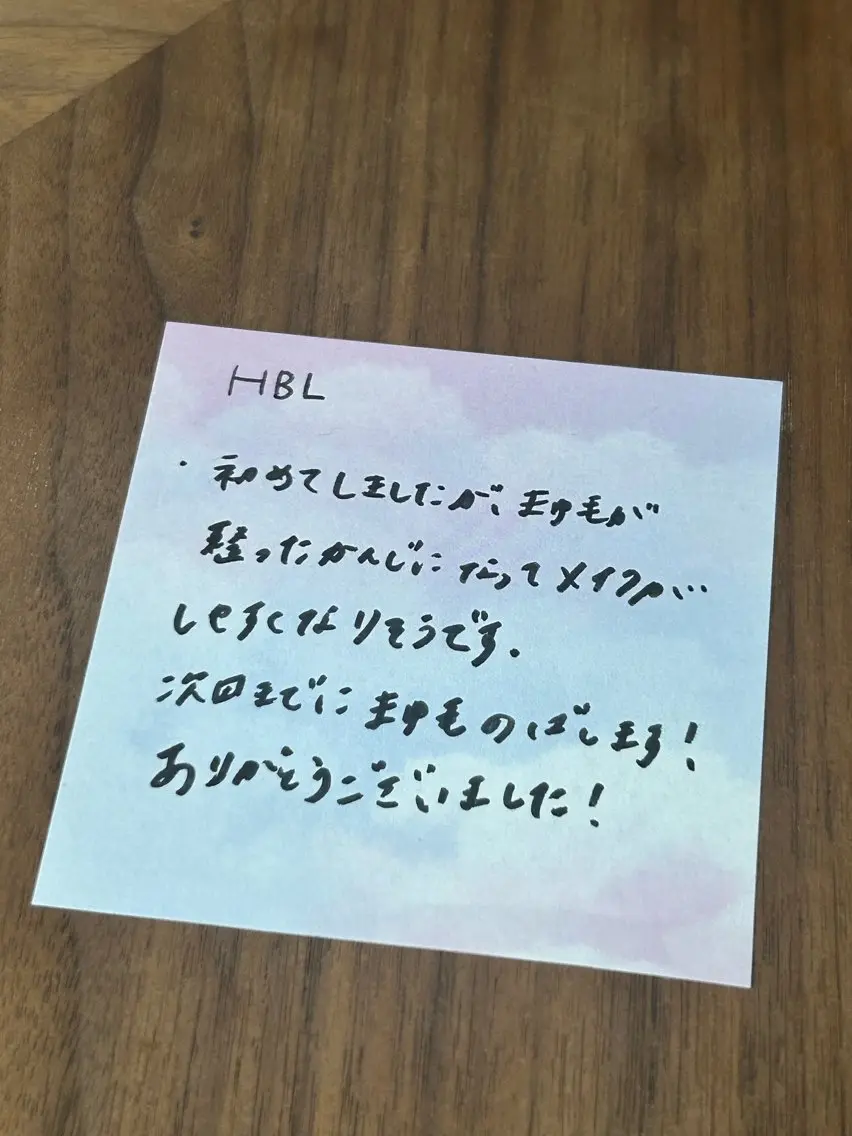 HBL
・初めてしましたが、まゆ毛が
整ったかんじになってメイクが
しやすくなりそうです。
次回までにまゆ毛のばします!
ありがとうございました!